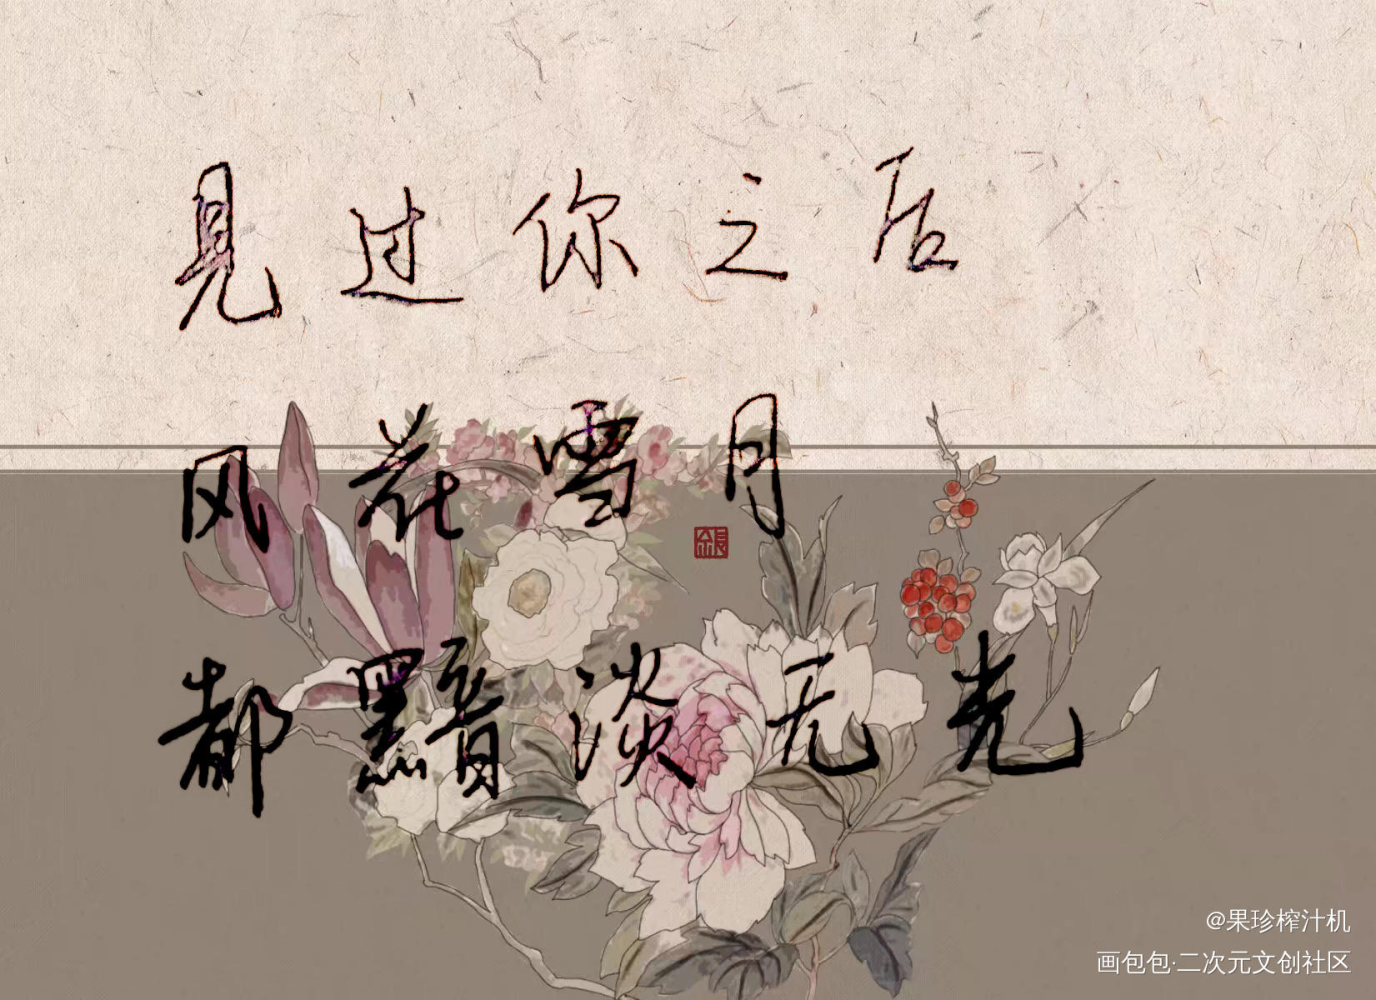 见过你之后
风花雪月
都黯淡无光
@果珍榨汁机
画包包·二次元文创社区